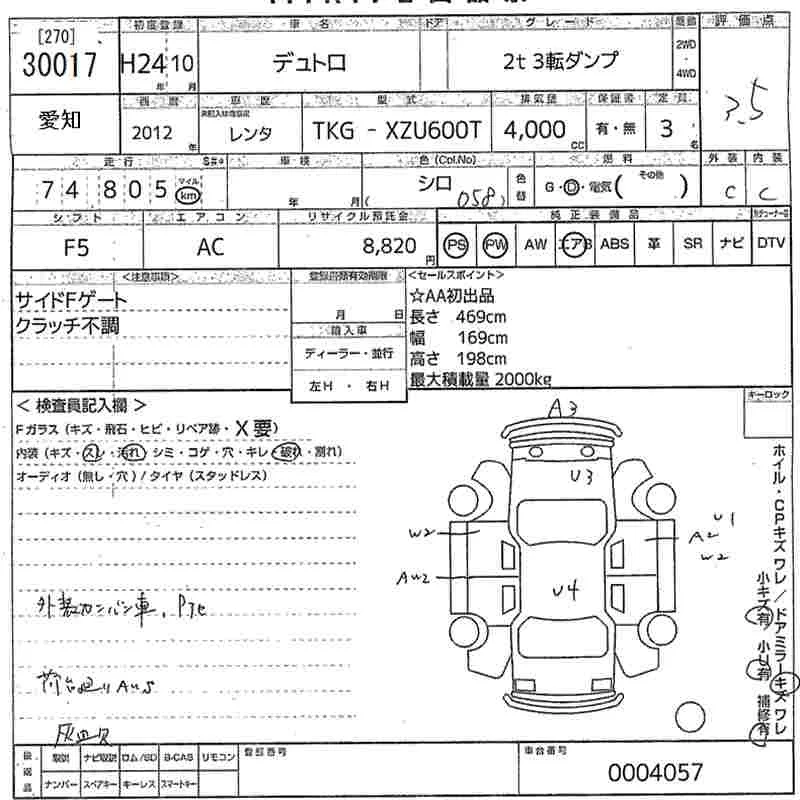 [270]
30017
初度登録
車名
ドア
グレード
駆動
評価点
H24 10
年 月
デュトロ
2t 3転ダンプ
2WD
・
4WD
3.5
愛知
西暦
車歴
型式
排気量
保証書
定員
2012 年
レンタ
TKG - XZU600T
4,000 cc
有・無
3 名
走行
S#*
車検
色 (Col.No)
燃料
外装
内装
74 805
マイル
km
年 月
シロ
(058)
色替
G・D・電気(その他 )
C
C
シフト
エアコン
リサイクル預託金
純正装備品
F5
AC
8,820 円
PS
PW
AW
エアB
ABS
革
SR
ナビ
DTV
<注意事項>
登録書類有効期限
<セールスポイント>
サイドFゲート
クラッチ不調
月 日
輸入車
ディーラー・並行
左H ・ 右H
☆AA初出品
長さ 469cm
幅 169cm
高さ 198cm
最大積載量 2000kg
キーロック
< 検査員記入欄 >
Fガラス (キズ・飛石・ヒビ・リペア跡・X要)
内装 (キズ・スレ・汚れ・シミ・コゲ・穴・キレ・破れ・割れ)
オーディオ (無し・穴) / タイヤ (スタッドレス)
A3
U3
W2
AW2
U4
U1
A2
W2
外装カンバン車、
荷台廻り AUS
灰皿欠
ホイル・CPキズワレ/ドアミラーキズワレ
小キズ有 小U有 補修有
後返品
取説
ナビ取説
ロム/SD
B-CAS
リモコン
ナンバー
スペアキー
キーレス
スマートキー
登録番号
車台番号
0004057